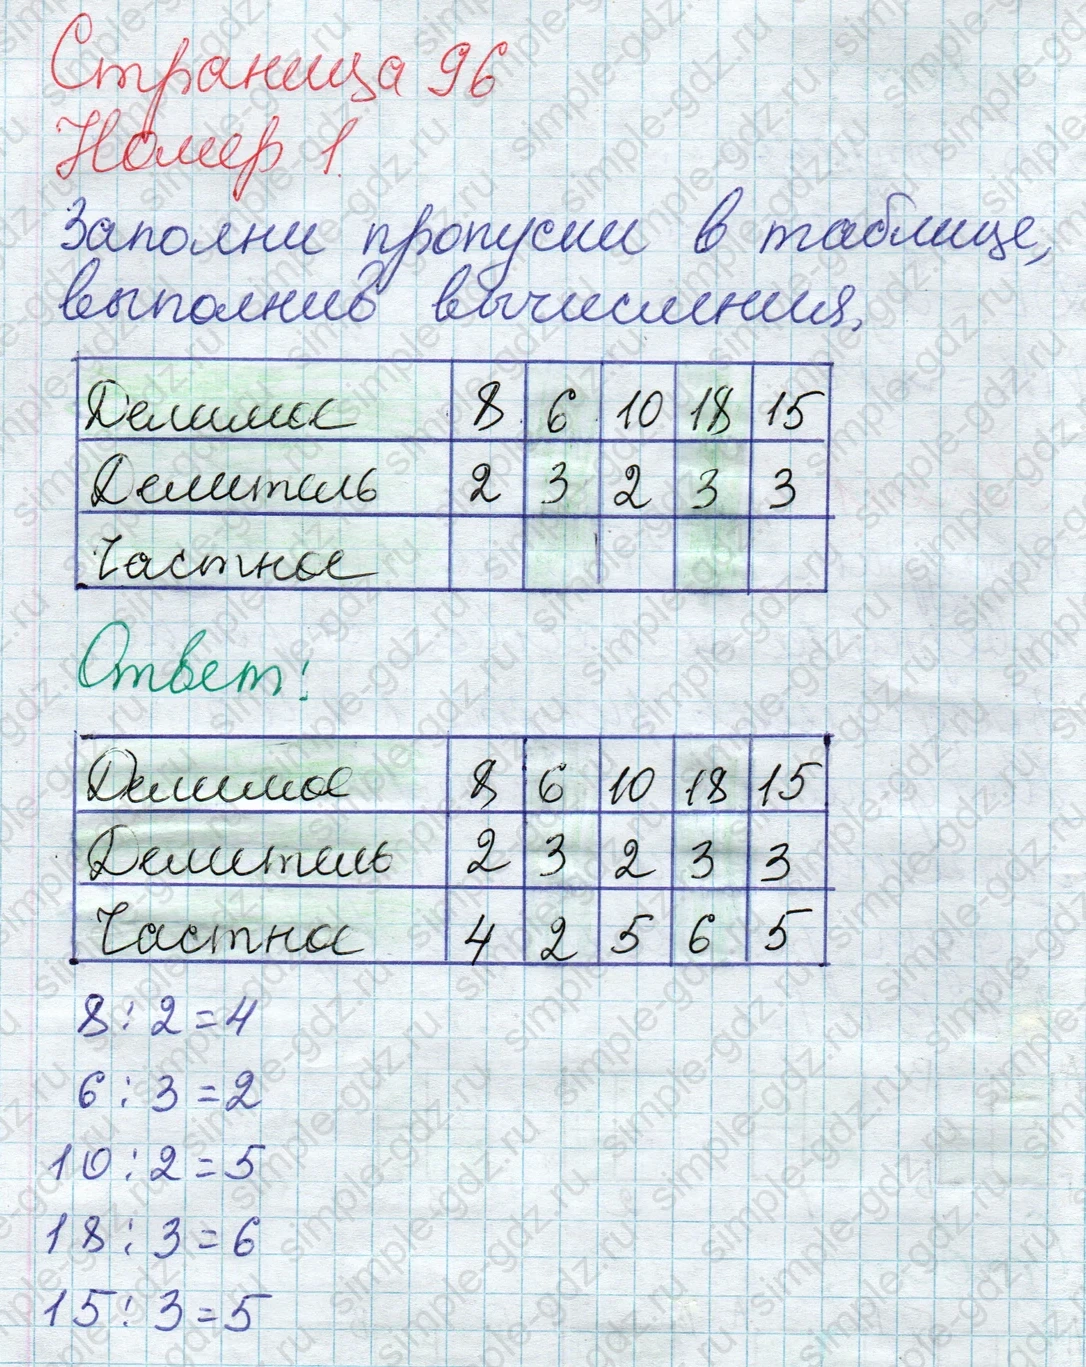 Страница 96
Номер 1.
Заполни пропуски в таблице,
выполнив вычисления.
Делимое 8 6 10 18 15
Делитель 2 3 2 3 3
Частное
Ответ:
Делимое 8 6 10 18 15
Делитель 2 3 2 3 3
Частное 4 2 5 6 5
8 : 2 = 4
6 : 3 = 2
10 : 2 = 5
18 : 3 = 6
15 : 3 = 5
simple-gdz.ru